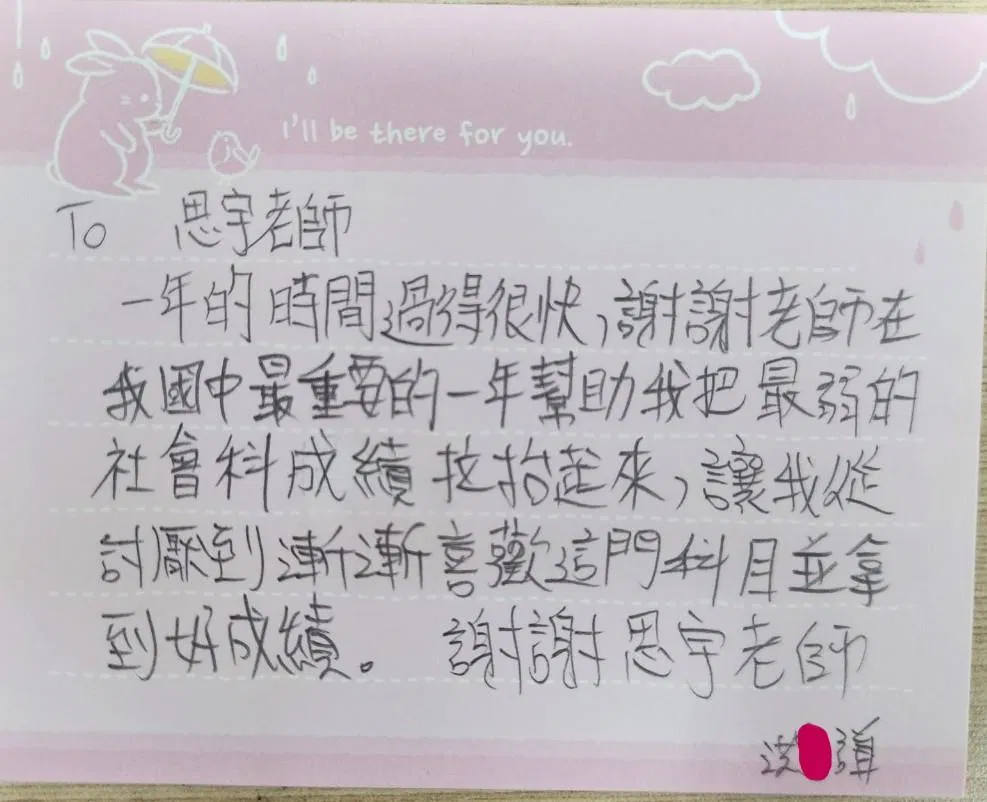 I'll be there for you.
To 思宇老師
一年的時間過得很快,謝謝老師在
我國中最重要的一年幫助我把最弱的
社會科成績拉抬起來,讓我從
討厭到漸漸喜歡這門科目並拿
到好成績。 謝謝思宇老師